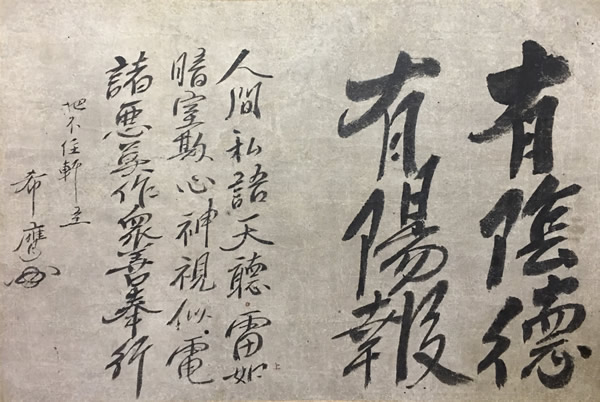 有陰德
有陽報
人間私語天聽雷如上
暗室欺心神視似電
諸悪莫作衆善奉行
不住軒主
希鷹